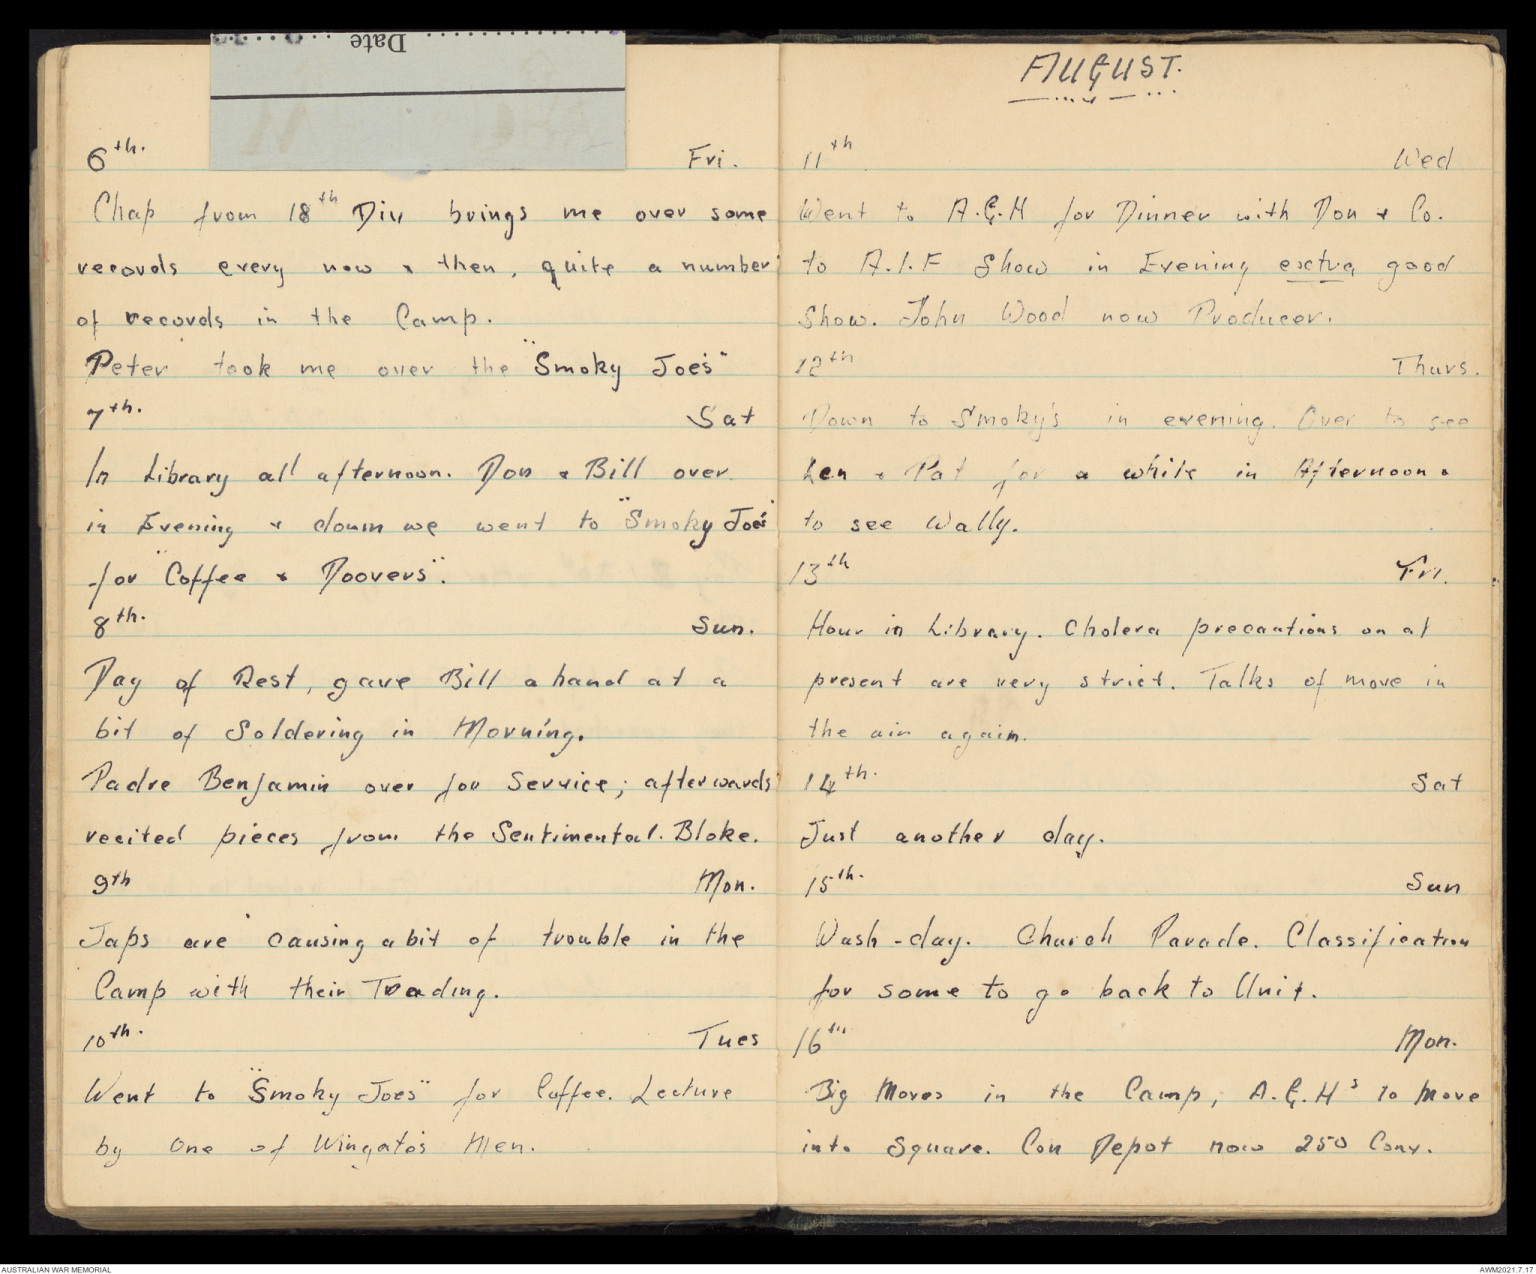 Date
6th. Fri.
Chap from 18th Div brings me over some
records every now & then, quite a number
of records in the Camp.
Peter took me over the "Smoky Joe's"
7th. Sat
In Library all afternoon. Don & Bill over
in Evening & down we went to "Smoky Joe's"
for "Coffee & Doovers".
8th. Sun.
Day of Rest, gave Bill a hand at a
bit of Soldering in Morning.
Padre Benjamin over for Service; afterwards
recited pieces from the Sentimental. Bloke.
9th Mon.
Japs are causing a bit of trouble in the
Camp with their Trading.
10th. Tues
Went to "Smoky Joes" for Coffee. Lecture
by One of Wingate's Men.
AUGUST.
11th Wed
Went to A.G.H for Dinner with Don & Co.
to A.I.F Show in Evening extra good
Show. John Wood now Producer.
12th Thurs.
Down to Smoky's in evening. Over to see
Len & Pat for a while in Afternoon &
to see Wally.
13th Fri.
Hour in Library. Cholera precautions on at
present are very strict. Talks of move in
the air again.
14th. Sat
Just another day.
15th. Sun
Wash-day. Church Parade. Classification
for some to go back to Unit.
16th Mon.
Big Moves in the Camp, A.G.H's to Move
into Square. Con Depot now 250 Conv.
AUSTRALIAN WAR MEMORIAL
AWM2021.7.17